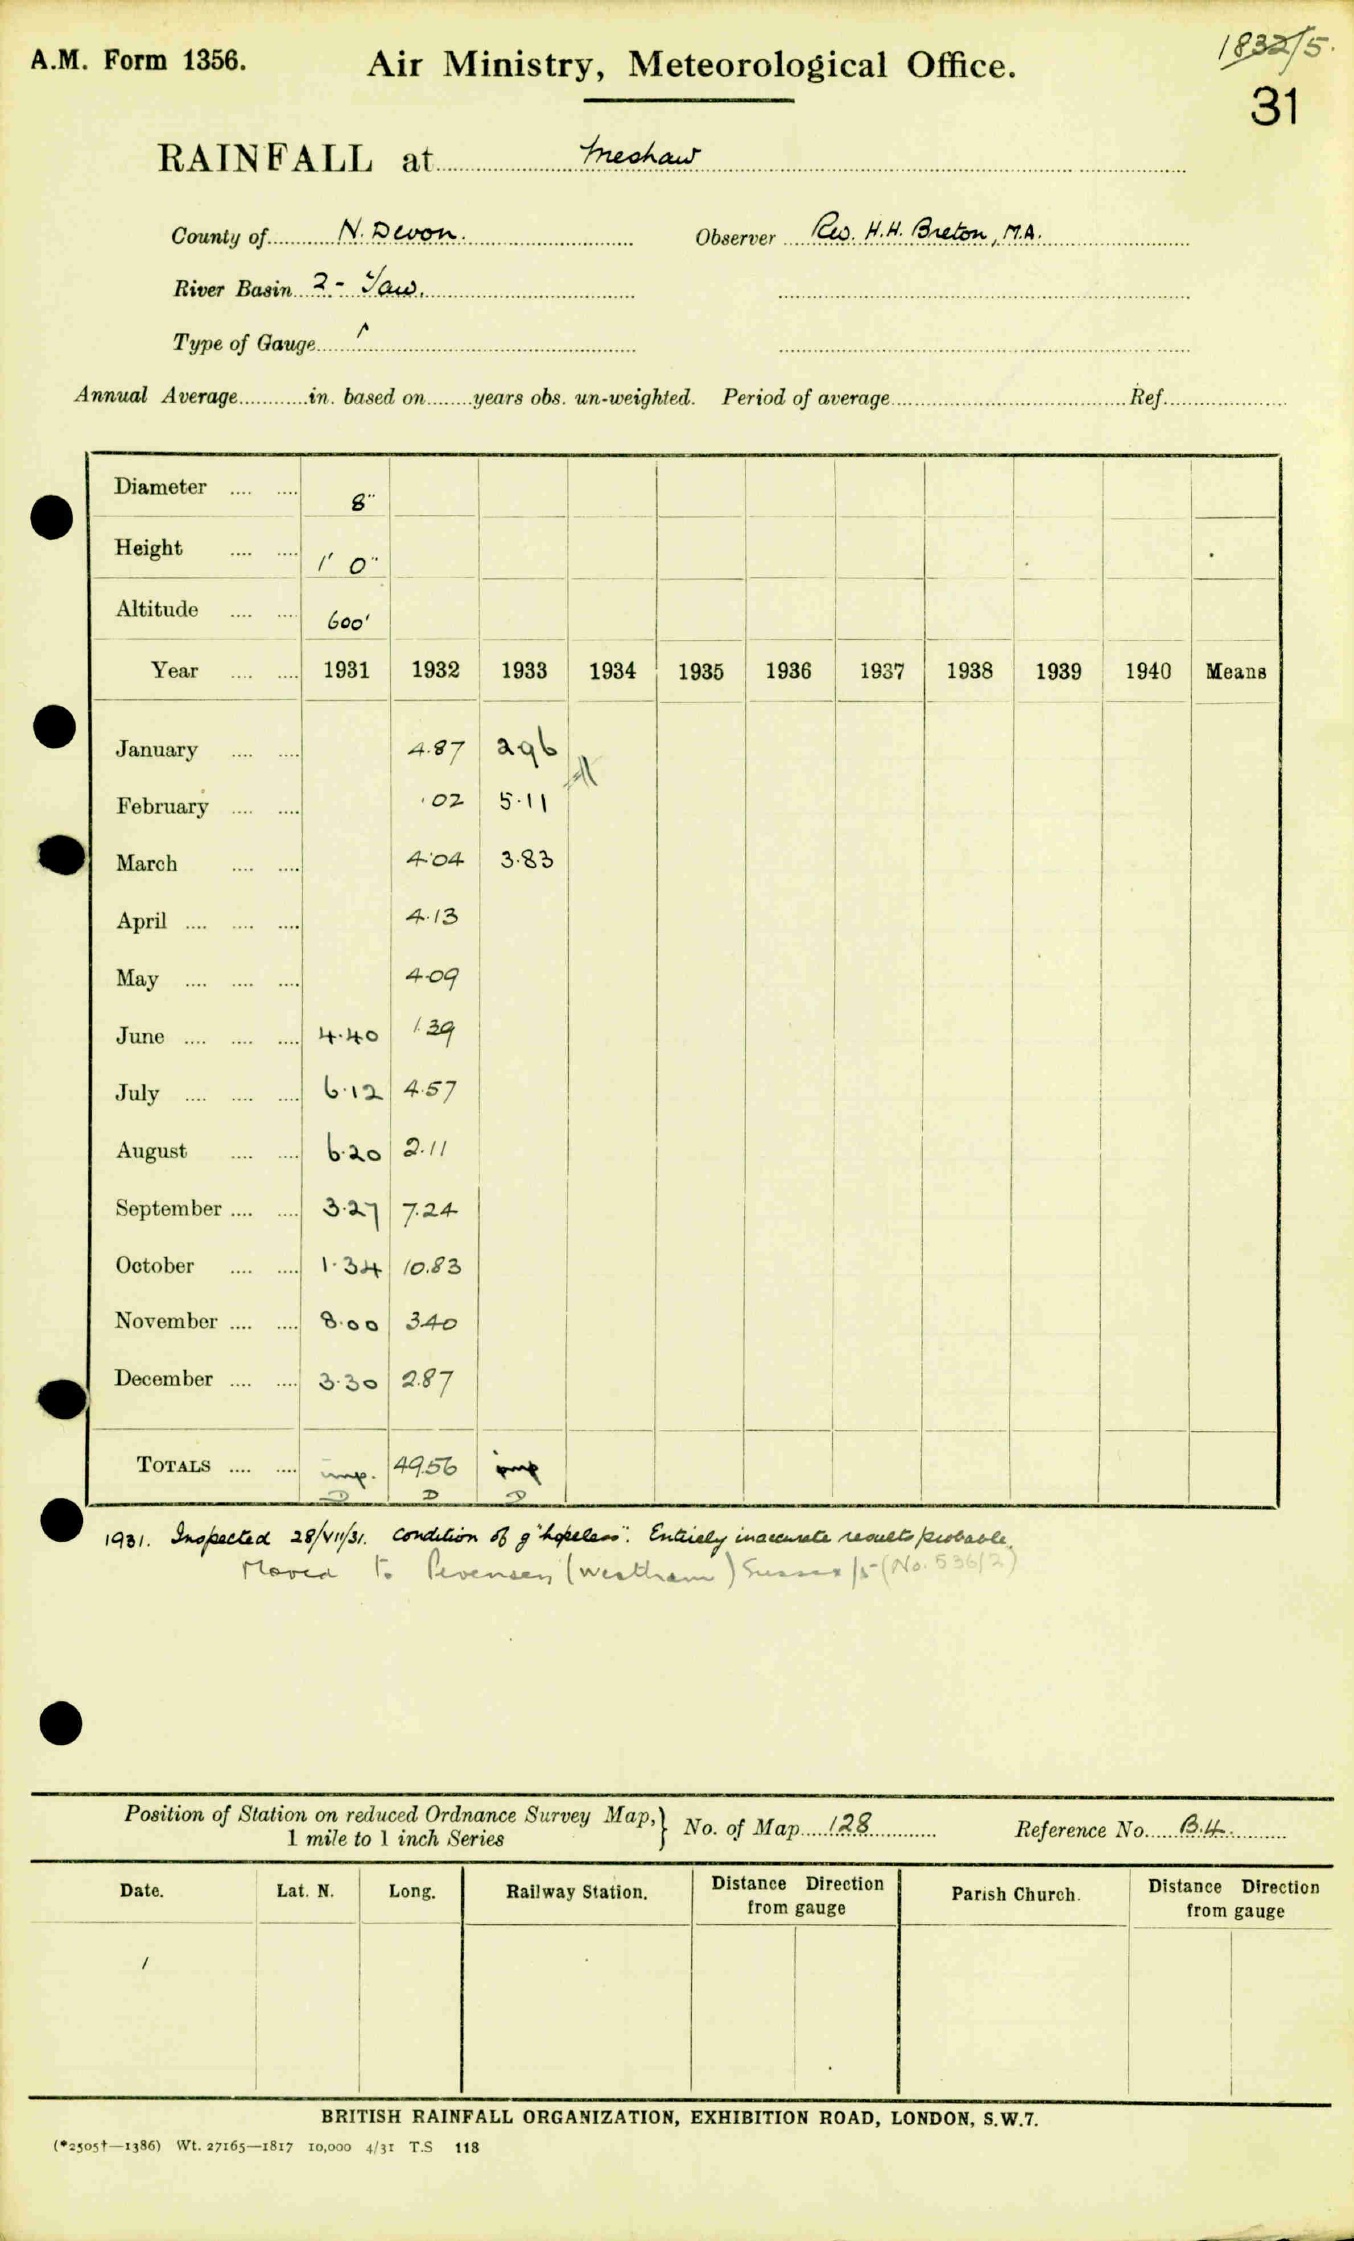 A.M. Form 1356.
Air Ministry, Meteorological Office.
1832/5.
31
RAINFALL at Meshaw
County of N. Devon. Observer Rev. H.H. Breton, M.A.
River Basin 2 - Taw.
Type of Gauge
Annual Average in. based on years obs. un-weighted. Period of average Ref.
Diameter 8"
Height 1' 0"
Altitude 600'
Year 1931 1932 1933 1934 1935 1936 1937 1938 1939 1940 Means
January 4.87 2.96
February .02 5.11
March 4.04 3.83
April 4.13
May 4.09
June 4.40 1.39
July 6.12 4.57
August 6.20 2.11
September 3.27 7.24
October 1.34 10.83
November 8.00 3.40
December 3.30 2.87
TOTALS imp. 49.56 imp
D D D
1931. Inspected 28/VII/31. Condition of g "hopeless". Entirely inaccurate results probable.
Moved to Pevensey (Westham) Sussex /5 (No. 536/2)
Position of Station on reduced Ordnance Survey Map, 1 mile to 1 inch Series } No. of Map 128 Reference No. B.4.
Date. Lat. N. Long. Railway Station. Distance Direction from gauge Parish Church. Distance Direction from gauge
BRITISH RAINFALL ORGANIZATION, EXHIBITION ROAD, LONDON, S.W.7.
(*2505†—1386) Wt. 27165—1817 10,000 4/31 T.S 118